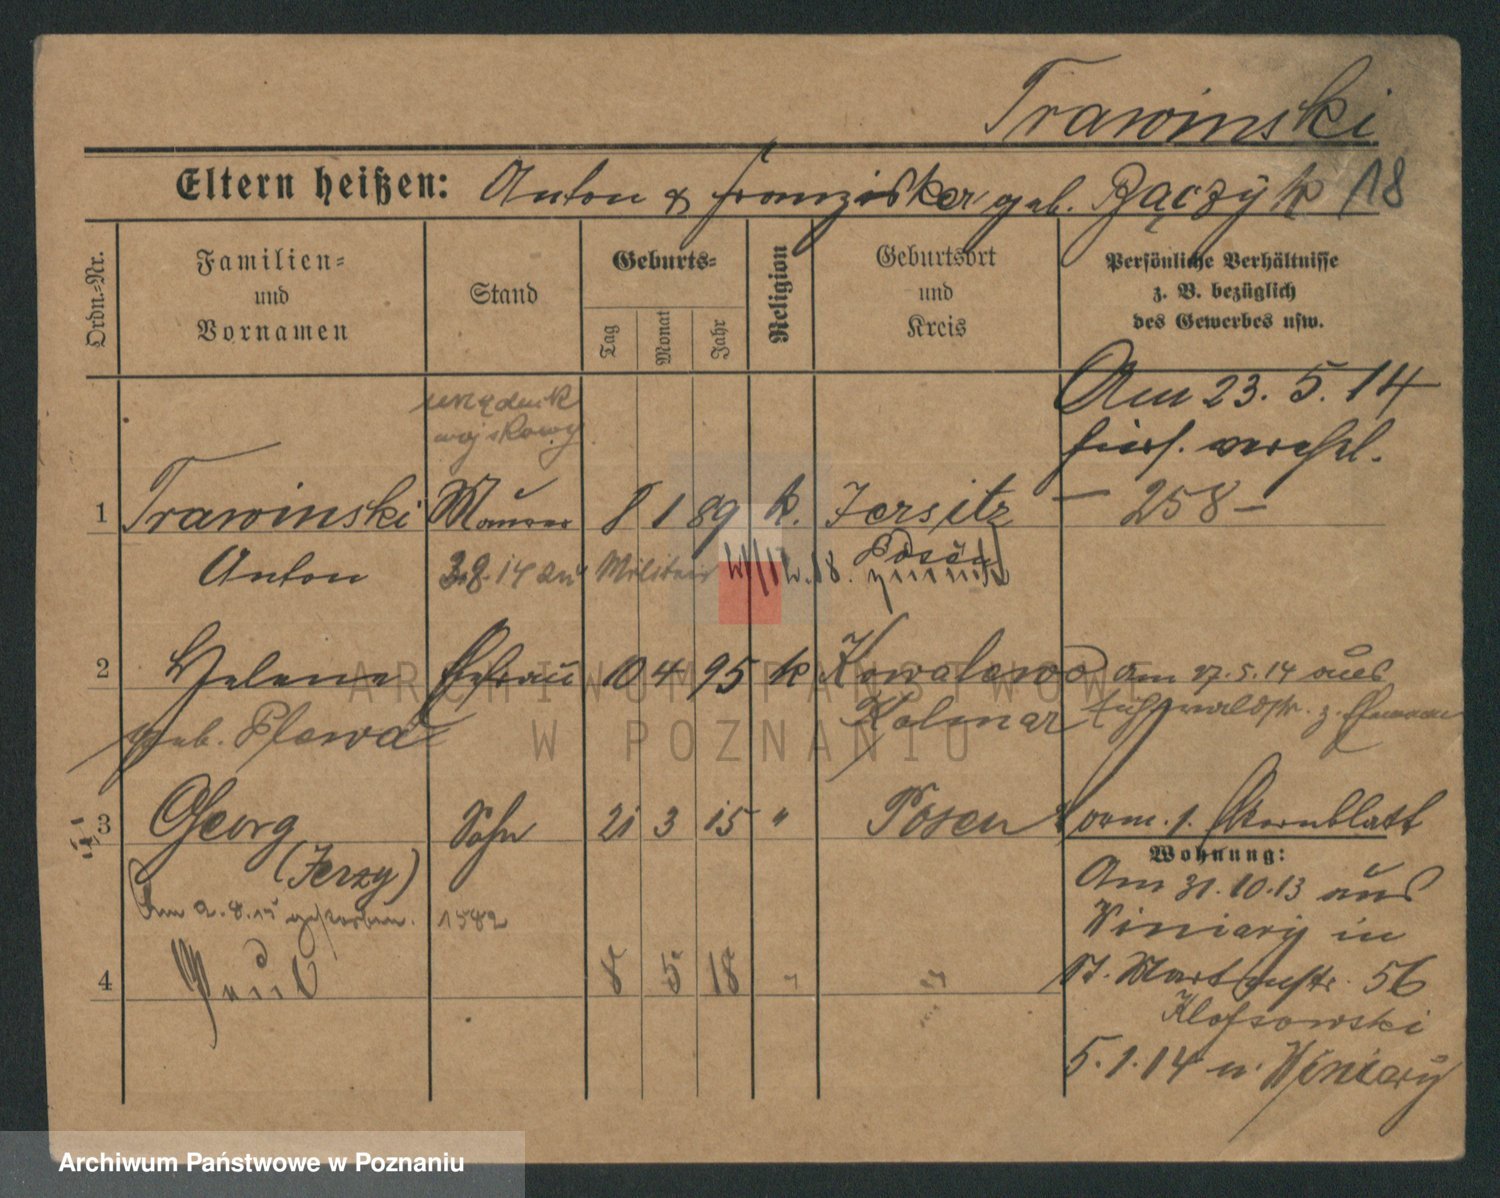 Trawinski
Eltern heißen: Anton & Franziska geb. Bączyk 18
Ordn.-Nr.
Familien-
und
Vornamen
Stand
Geburts-
Tag
Monat
Jahr
Religion
Geburtsort
und
Kreis
Persönliche Verhältnisse
z. B. bezüglich
des Gewerbes usw.
urzędnik
wojskowy
Am 23. 5. 14
hiers. verehel.
– 258 –
1 Trawinski Maurer 8 1 89 k. Jersitz
Anton 3.8.14 zu Militair 18. Posen
2 Helene Ehefrau 10 4 95 k Kowalewo Am 27.5.14 aus
geb. Kolmar z. Ehemann
3 Georg Sohn 21 3 15 " Posen
(Jerzy)
Am 2.8.15 gestorben. 1582
4 Paul 8 5 18 "
1. Ehernblatt
Wohnung:
Am 31.10.13 aus
Winiary in
St. Martinstr. 56
Klossowski
5.1.14 n. Winiary
ARCHIWUM PAŃSTWOWE
W POZNANIU
Archiwum Państwowe w Poznaniu